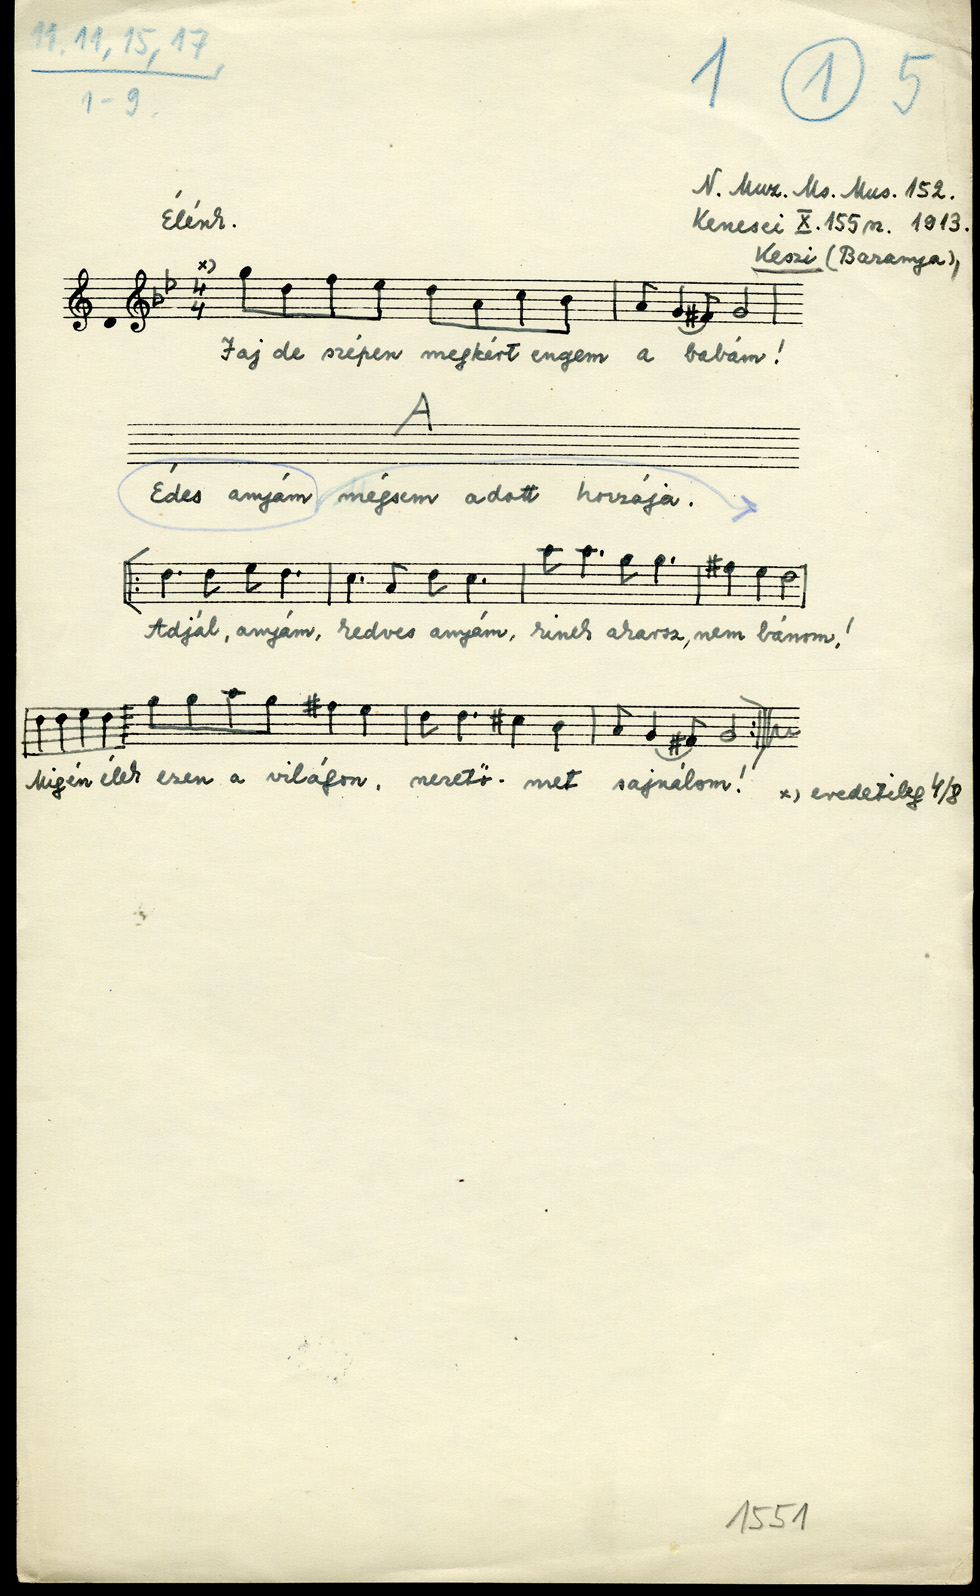 11. 11, 15, 17,
1-9.
1 1 5
N. Muz. Ms. Mus. 152.
Kenesei X. 155 n. 1913.
Keszi (Baranya),
Élénk.
x)
4
4
Jaj de szépen megkért engem a babám!
A
Édes anyám mégsem adott hozzája.
Adjál, anyám, kedves anyám, kinek akarsz, nem bánom!
Míg én élek ezen a világon, szerető-met sajnálom!
x) eredetileg 4/8
1551